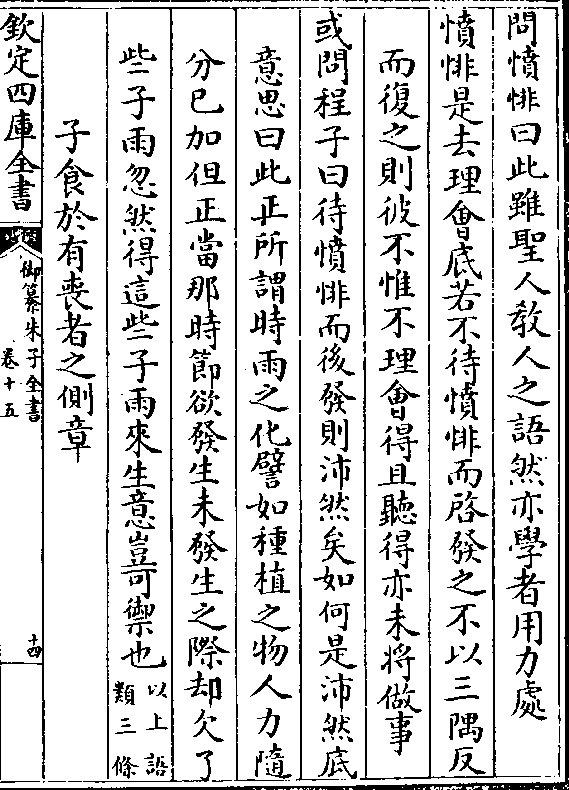 問憤悱曰此雖聖人教人之語然亦學者用力處
憤悱是去理會底若不待憤悱而啓發之不以三隅反
而復之則彼不惟不理會得且聽得亦未將做事
或問程子曰待憤悱而後發則沛然矣如何是沛然底
意思曰此正所謂時雨之化譬如種植之物人力隨
分已加但正當那時節欲發生未發生之際却欠了
些子雨忽然得這些子雨來生意豈可禦也
以上語
類三條
子食於有喪者之側章
欽定四庫全書
御纂朱子全書
卷十五
十四